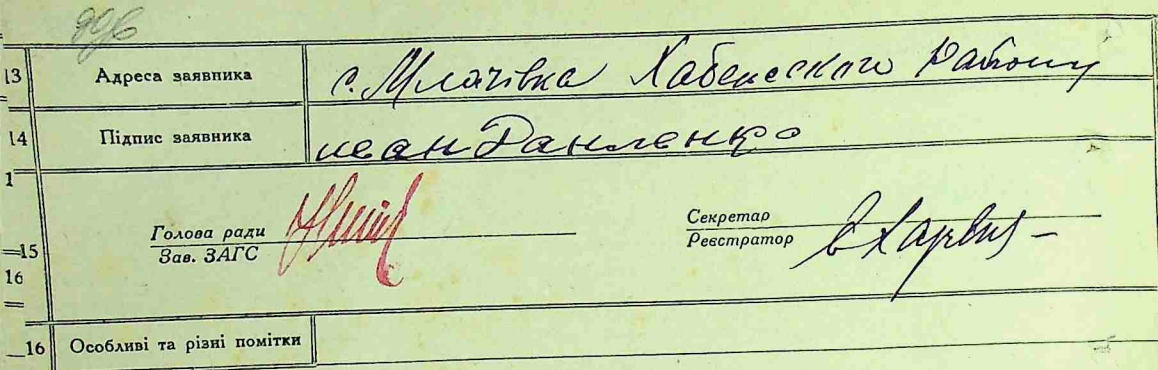 13 Адреса заявника с. Млачівка Хабенского Району
14 Підпис заявника иван Данленко
1
Голова ради
Зав. ЗАГС
Секретар
Реєстратор
15
16
16 Особливі та різні помітки